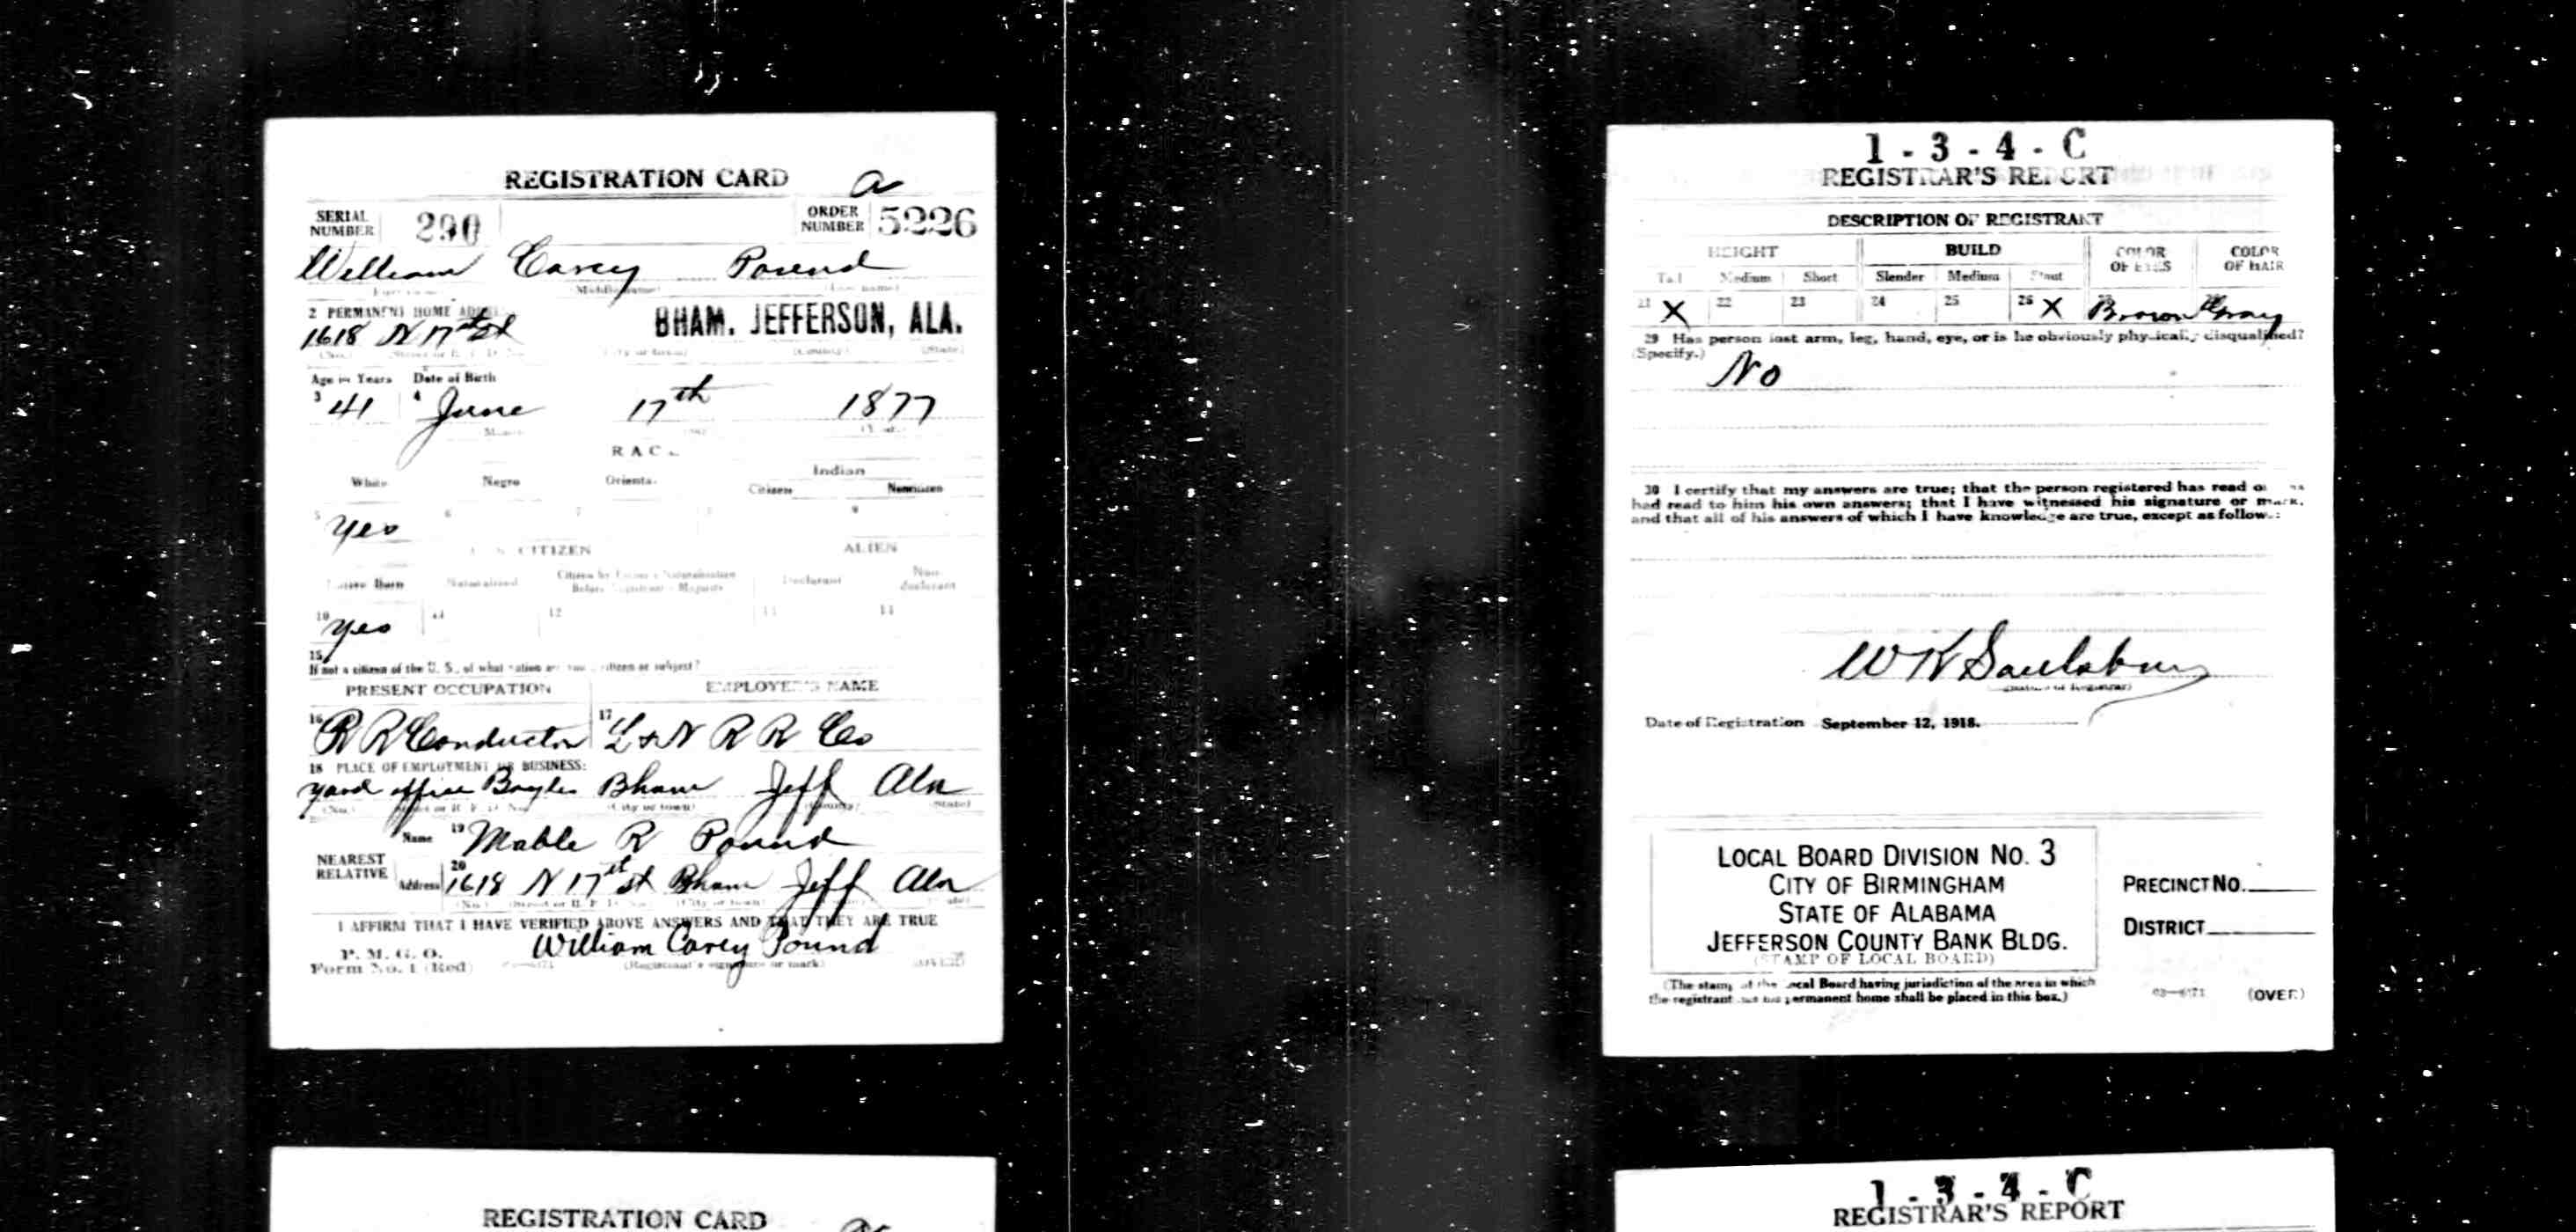 REGISTRATION CARD a
SERIAL NUMBER 290 ORDER NUMBER 5226
William Carey Pound
(Middle name) (Last name)
2 PERMANENT HOME
1618 N 17th St BHAM. JEFFERSON, ALA.
(No.) (City or town) (County) (State)
Age in Years Date of Birth
3 41 4 June 17th 1877
RACE
Indian
White Negro Oriental Citizen Noncitizen
5 Yes 6 7 8 9
U. S. CITIZEN ALIEN
Native Born Naturalized Declarant Non-declarant
10 Yes 11 12 13 14
15
If not a citizen of the U. S., of what nation are you a citizen or subject?
PRESENT OCCUPATION EMPLOYER'S NAME
16 R R Conductor 17 L & N R R Co
18 PLACE OF EMPLOYMENT OR BUSINESS:
Yard office Boyles Bham Jeff Ala
(No.) (City or town) (County) (State)
Name 19 Mable R Pound
NEAREST RELATIVE
Address 20 1618 N 17th St Bham Jeff Ala
(No.) (Street or R. F. D. No.) (City or town)
I AFFIRM THAT I HAVE VERIFIED ABOVE ANSWERS AND THAT THEY ARE TRUE
P. M. G. O.
Form No. 1 (Red) William Carey Pound
(Registrant's signature or mark) (OVER)
REGISTRATION CARD
1-3-4-C
REGISTRAR'S REPORT
DESCRIPTION OF REGISTRANT
HEIGHT BUILD COLOR OF EYES COLOR OF HAIR
Tall Medium Short Slender Medium Stout
21 X 22 23 24 25 26 X 27 Brown 28 Gray
29 Has person lost arm, leg, hand, eye, or is he obviously physically disqualified?
(Specify.)
No
30 I certify that my answers are true; that the person registered has read or has
had read to him his own answers; that I have witnessed his signature or mark,
and that all of his answers of which I have knowledge are true, except as follows:
W K Saulsbury
(Signature of Registrar)
Date of Registration September 12, 1918.
LOCAL BOARD DIVISION NO. 3
CITY OF BIRMINGHAM
STATE OF ALABAMA
JEFFERSON COUNTY BANK BLDG.
(STAMP OF LOCAL BOARD)
PRECINCT NO.
DISTRICT
(The stamp of the Local Board having jurisdiction of the area in which
the registrant has his permanent home shall be placed in this box.)
03—6171 (OVER)
1-3-4-C
REGISTRAR'S REPORT